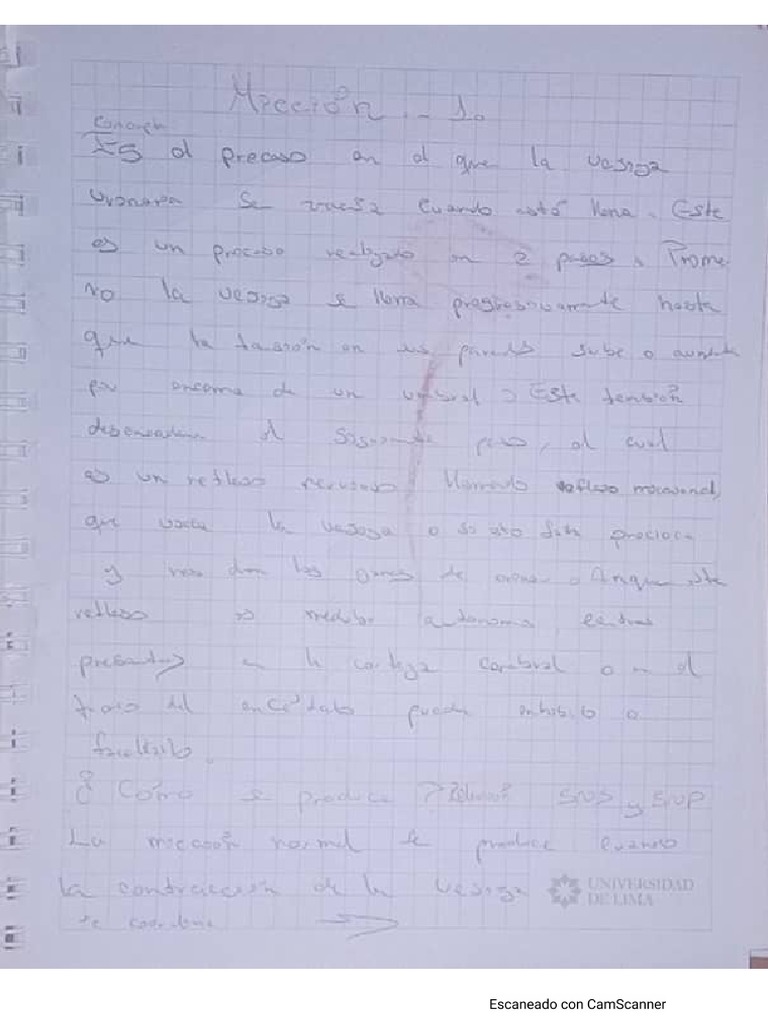 Micción .- 1.
Concepto
Es el proceso en el que la vejiga
urinaria se vacía cuando está llena. Este
es un proceso realizado en 2 pasos. Prime
ro la vejiga se llena progresivamente hasta
que la tensión en sus paredes sube o aumenta
por encima de un umbral. Esta tensión
desencadena el siguiente paso, el cual
es un reflejo nervioso llamado reflejo miccional,
que vacía la vejiga o si esto falla
y las ganas de orinar. Aunque este
reflejo es medular autónomo, centros
presentes en la corteza cerebral o en el
del encéfalo pueden inhibirlo o
facilitarlo.
¿Cómo se produce? SNS y SNP
La micción normal se produce cuando
la contracción de la vejiga
se coordina
UNIVERSIDAD
DE LIMA
Escaneado con CamScanner